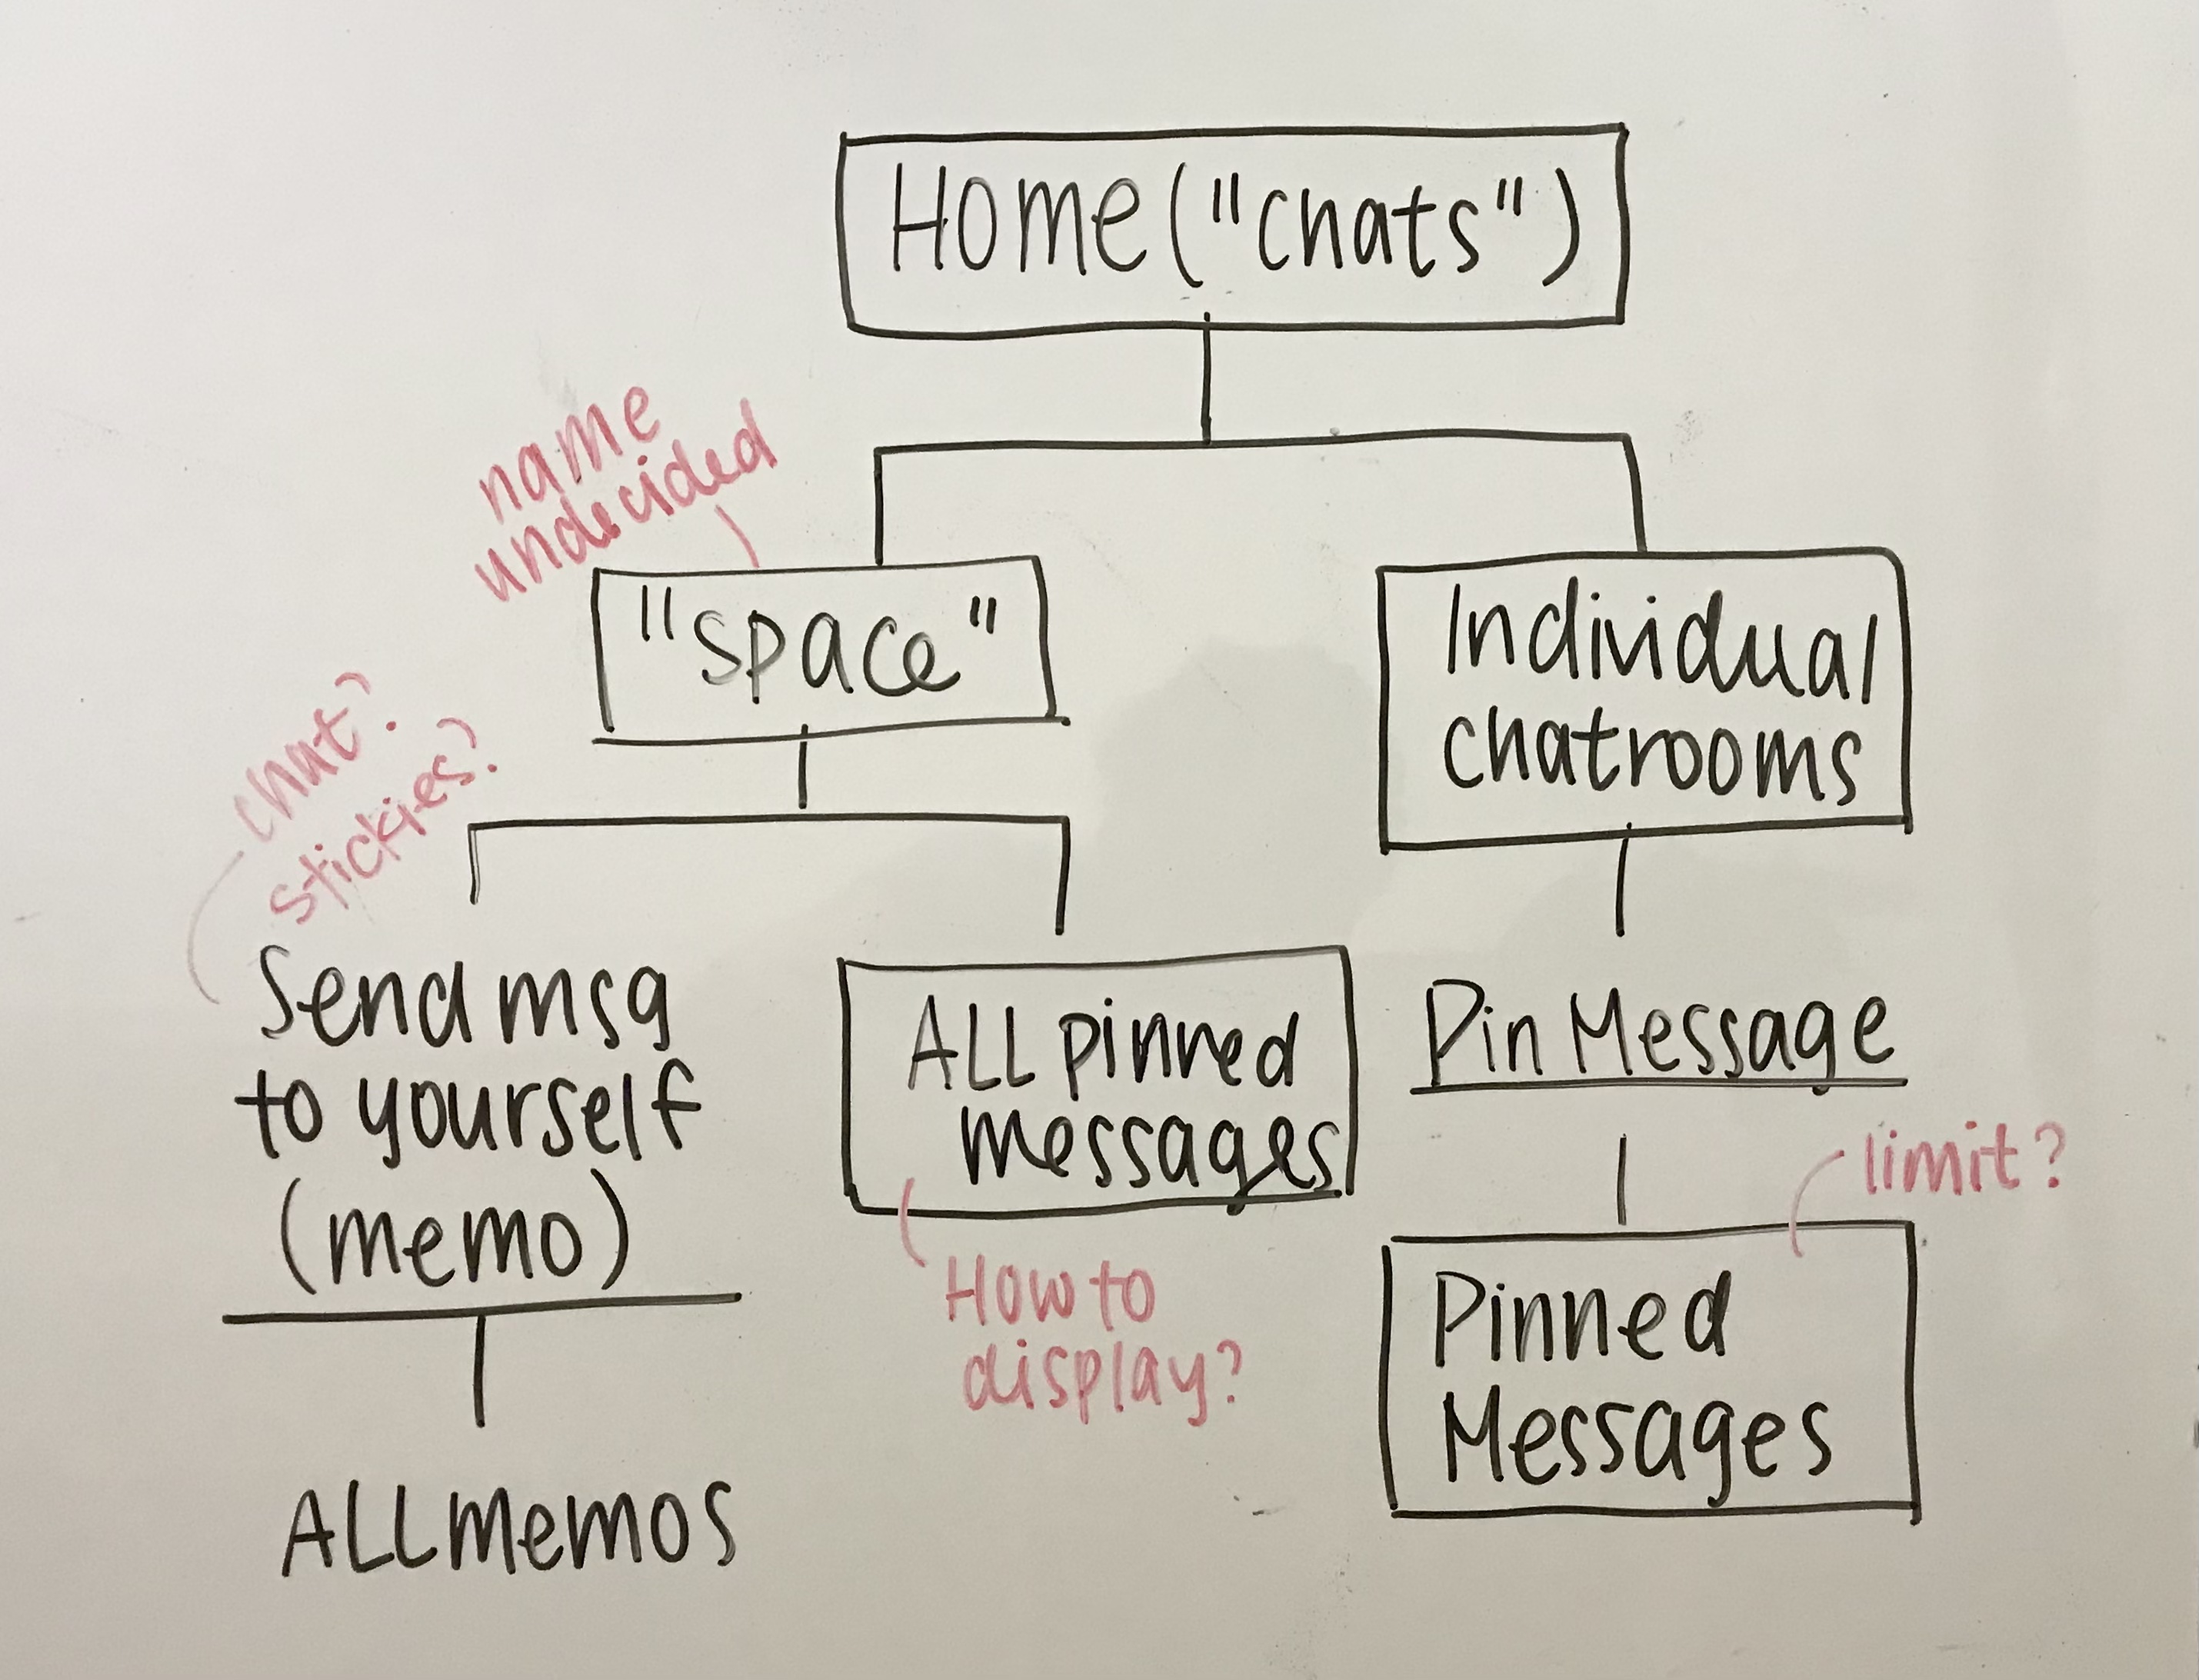 Home ("chats")
name
undecided
"space"
Individual
chatrooms
chat?
stickies?
Send msg
to yourself
(memo)
ALL pinned
messages
Pin Message
limit?
How to
display?
Pinned
Messages
ALL memos